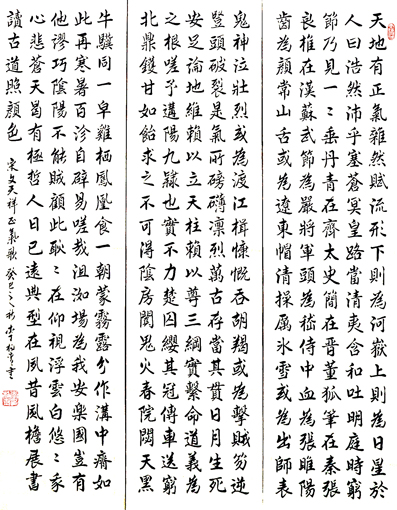 天地有正氣雜然賦流形下則為河嶽上則為日星於
人曰浩然沛乎塞蒼冥皇路當清夷含和吐明庭時窮
節乃見一〻垂丹青在齊太史簡在晉董狐筆在秦張
良椎在漢蘇武節為嚴將軍頭為嵇侍中血為張睢陽
齒為顏常山舌或為遼東帽清操厲冰雪或為出師表
鬼神泣壯烈或為渡江楫慷慨吞胡羯或為擊賊笏逆
豎頭破裂是氣所磅礴凜烈萬古存當其貫日月生死
安足論地維賴以立天柱賴以尊三綱實繫命道義為
之根嗟予遘陽九隸也實不力楚囚纓其冠傳車送窮
北鼎鑊甘如飴求之不可得陰房闃鬼火春院閟天黑
牛驥同一皁雞棲鳳凰食一朝蒙霧露分作溝中瘠如
此再寒暑百沴自辟易嗟哉沮洳場為我安樂國豈有
他謬巧陰陽不能賊顧此耿〻在仰視浮雲白悠〻我
心悲蒼天曷有極哲人日已遠典型在夙昔風檐展書
讀古道照顏色
宋文天祥正氣歌癸巳之秋李書